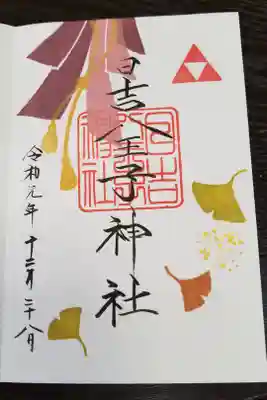 日吉八王子神社
令和元年十二月二十八日
日吉
神社